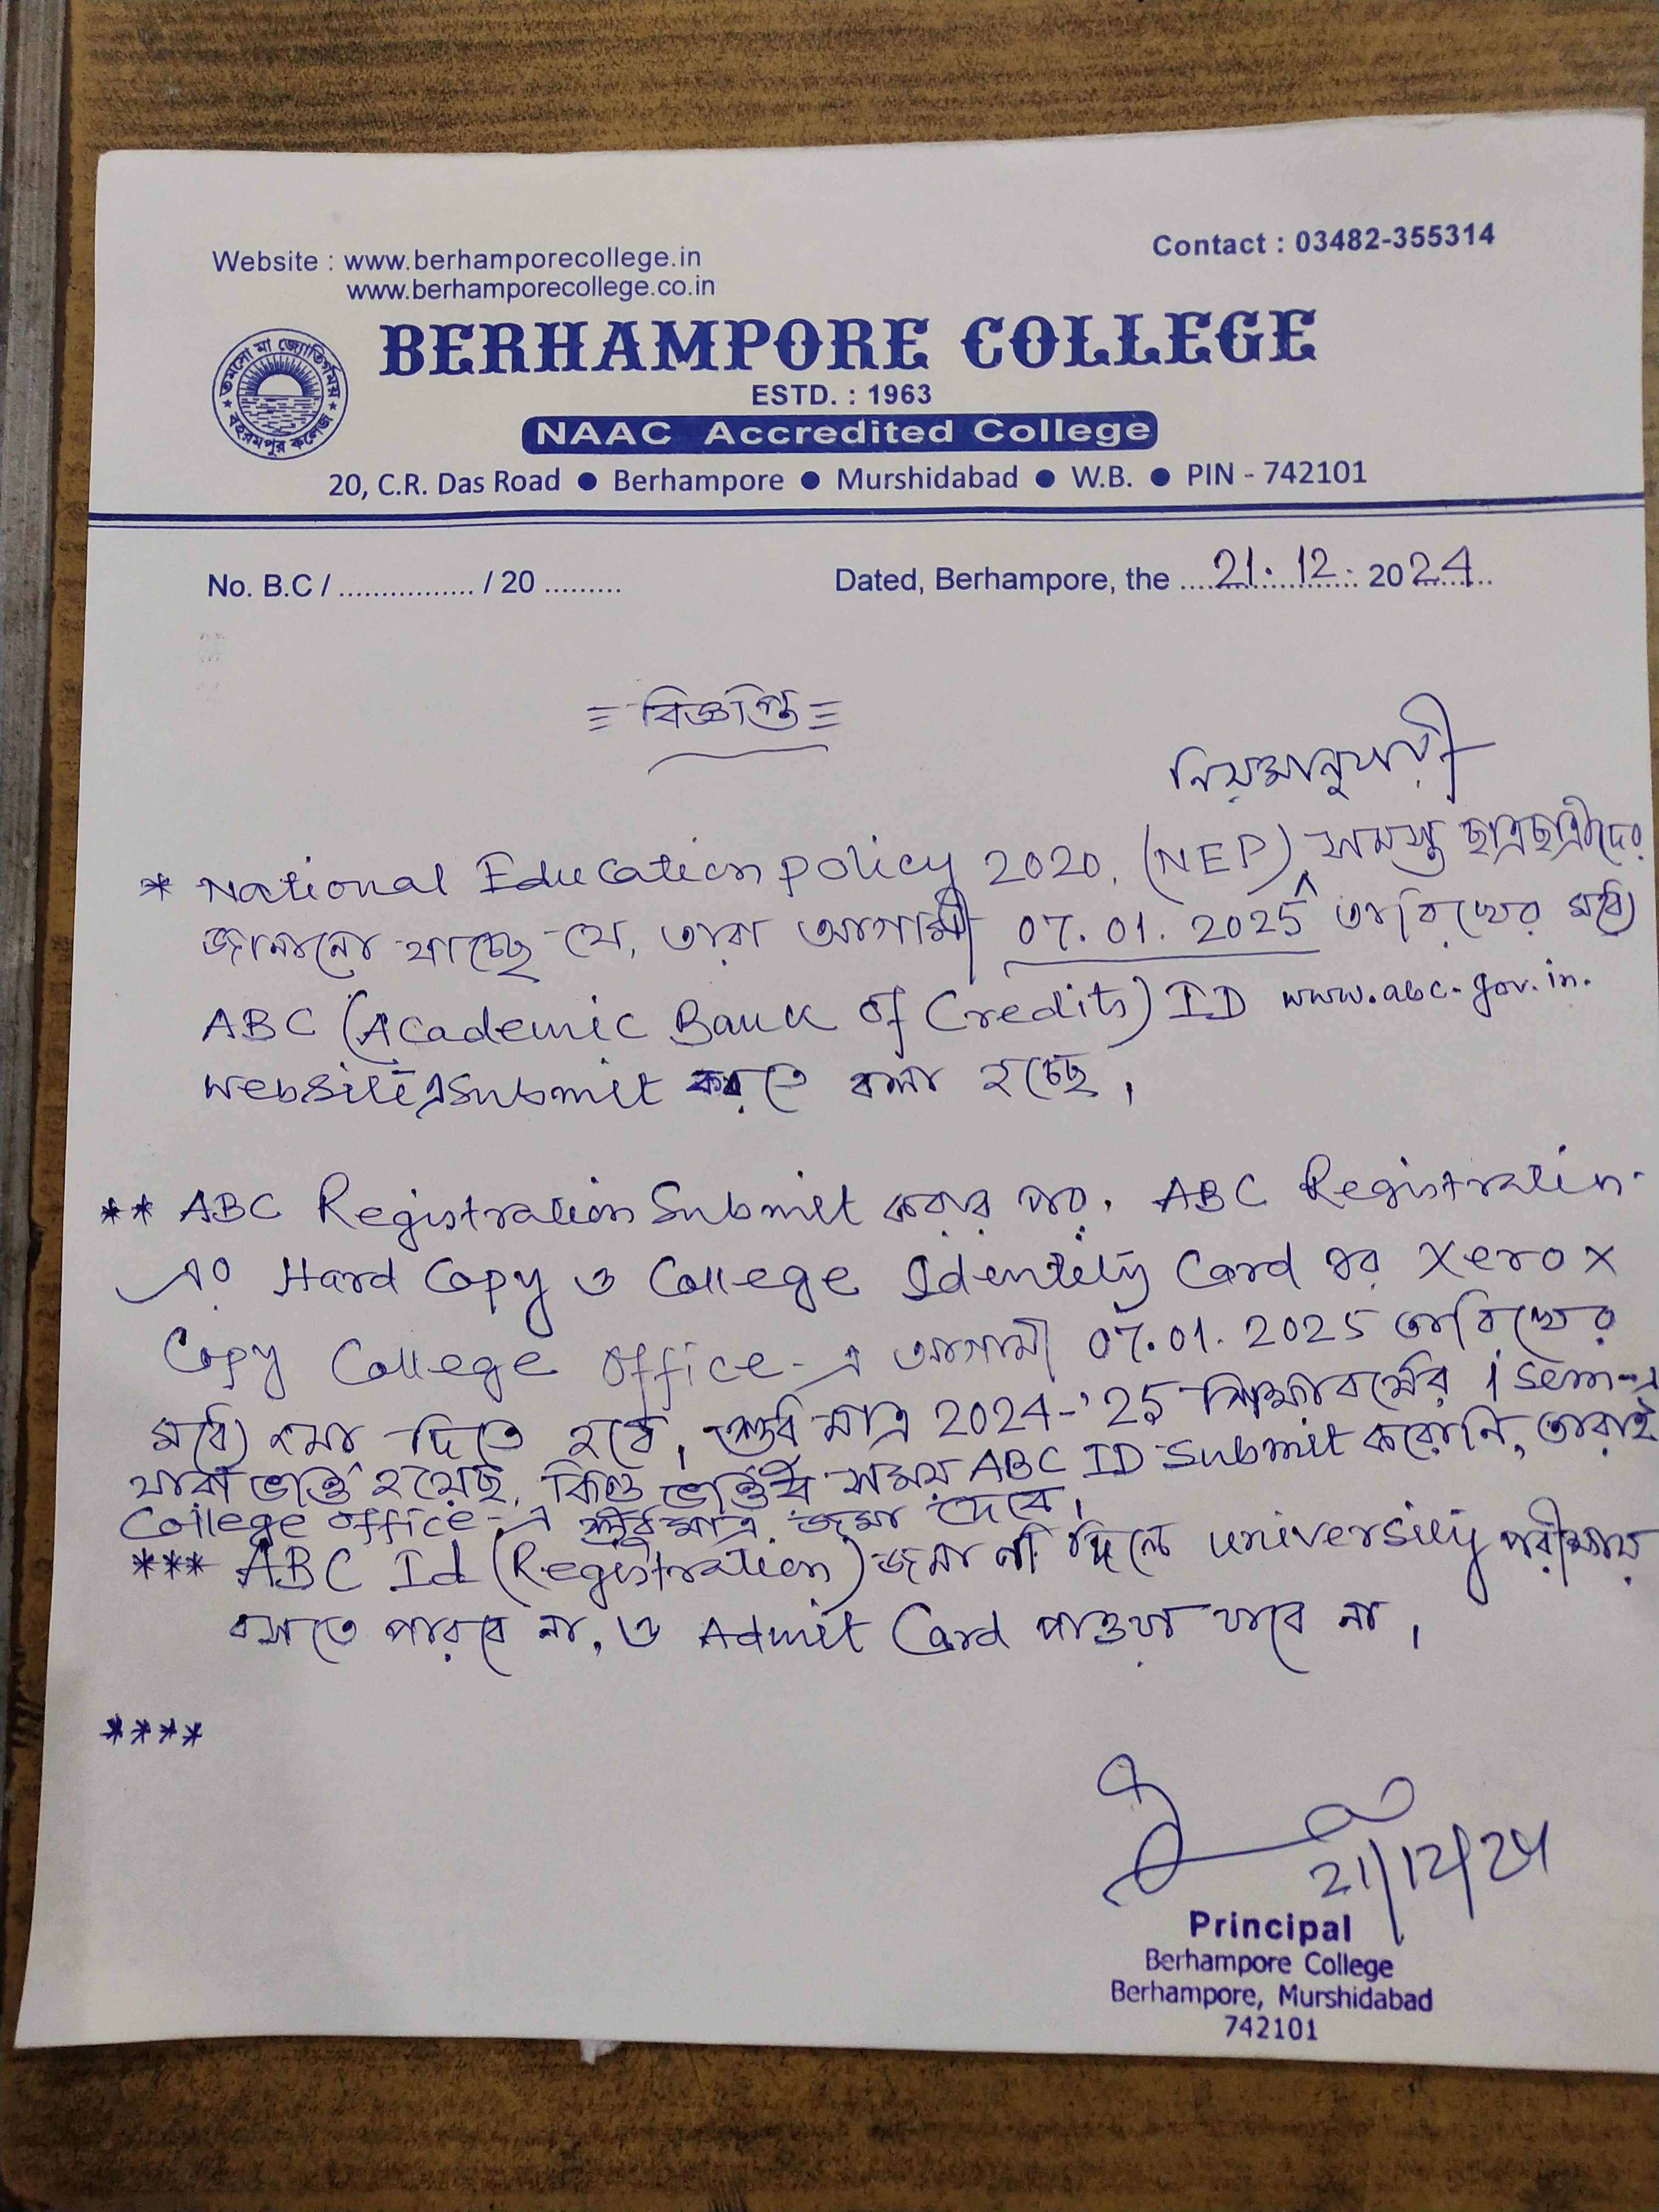 Website : www.berhamporecollege.in
www.berhamporecollege.co.in
Contact : 03482-355314
তমসো মা জ্যোতির্গময়
বহরমপুর কলেজ
BERHAMPORE COLLEGE
ESTD. : 1963
NAAC Accredited College
20, C.R. Das Road ● Berhampore ● Murshidabad ● W.B. ● PIN - 742101
No. B.C / ................ / 20 .........
Dated, Berhampore, the 21.12. 2024
বিজ্ঞপ্তি
নিয়মানুযায়ী
* National Education policy 2020. (NEP) সমস্ত ছাত্রছাত্রীদের
জানানো যাচ্ছে যে, তারা আগামী 07.01.2025 তারিখের মধ্যে
ABC (Academic Bank of Credits) ID www.abc.gov.in.
website এ submit করতে বলা হচ্ছে।
** ABC Registration Submit করার পর, ABC Registratin-
এর Hard Copy ও College Identity Card এর Xerox
Copy College office-এ আগামী 07.01.2025 তারিখের
মধ্যে জমা দিতে হবে। শুধু মাত্র 2024-'25 শিক্ষাবর্ষের 1 sem-এ
যারা ভর্তি হয়েছে, কিন্তু ভর্তির সময় ABC ID Submit করেনি, তারাই
College office-এ শুধুমাত্র জমা দেবে।
*** ABC Id (Registration) জমা না দিলে university পরীক্ষায়
বসতে পারবে না, ও Admit Card পাওয়া যাবে না।
****
21/12/24
Principal
Berhampore College
Berhampore, Murshidabad
742101